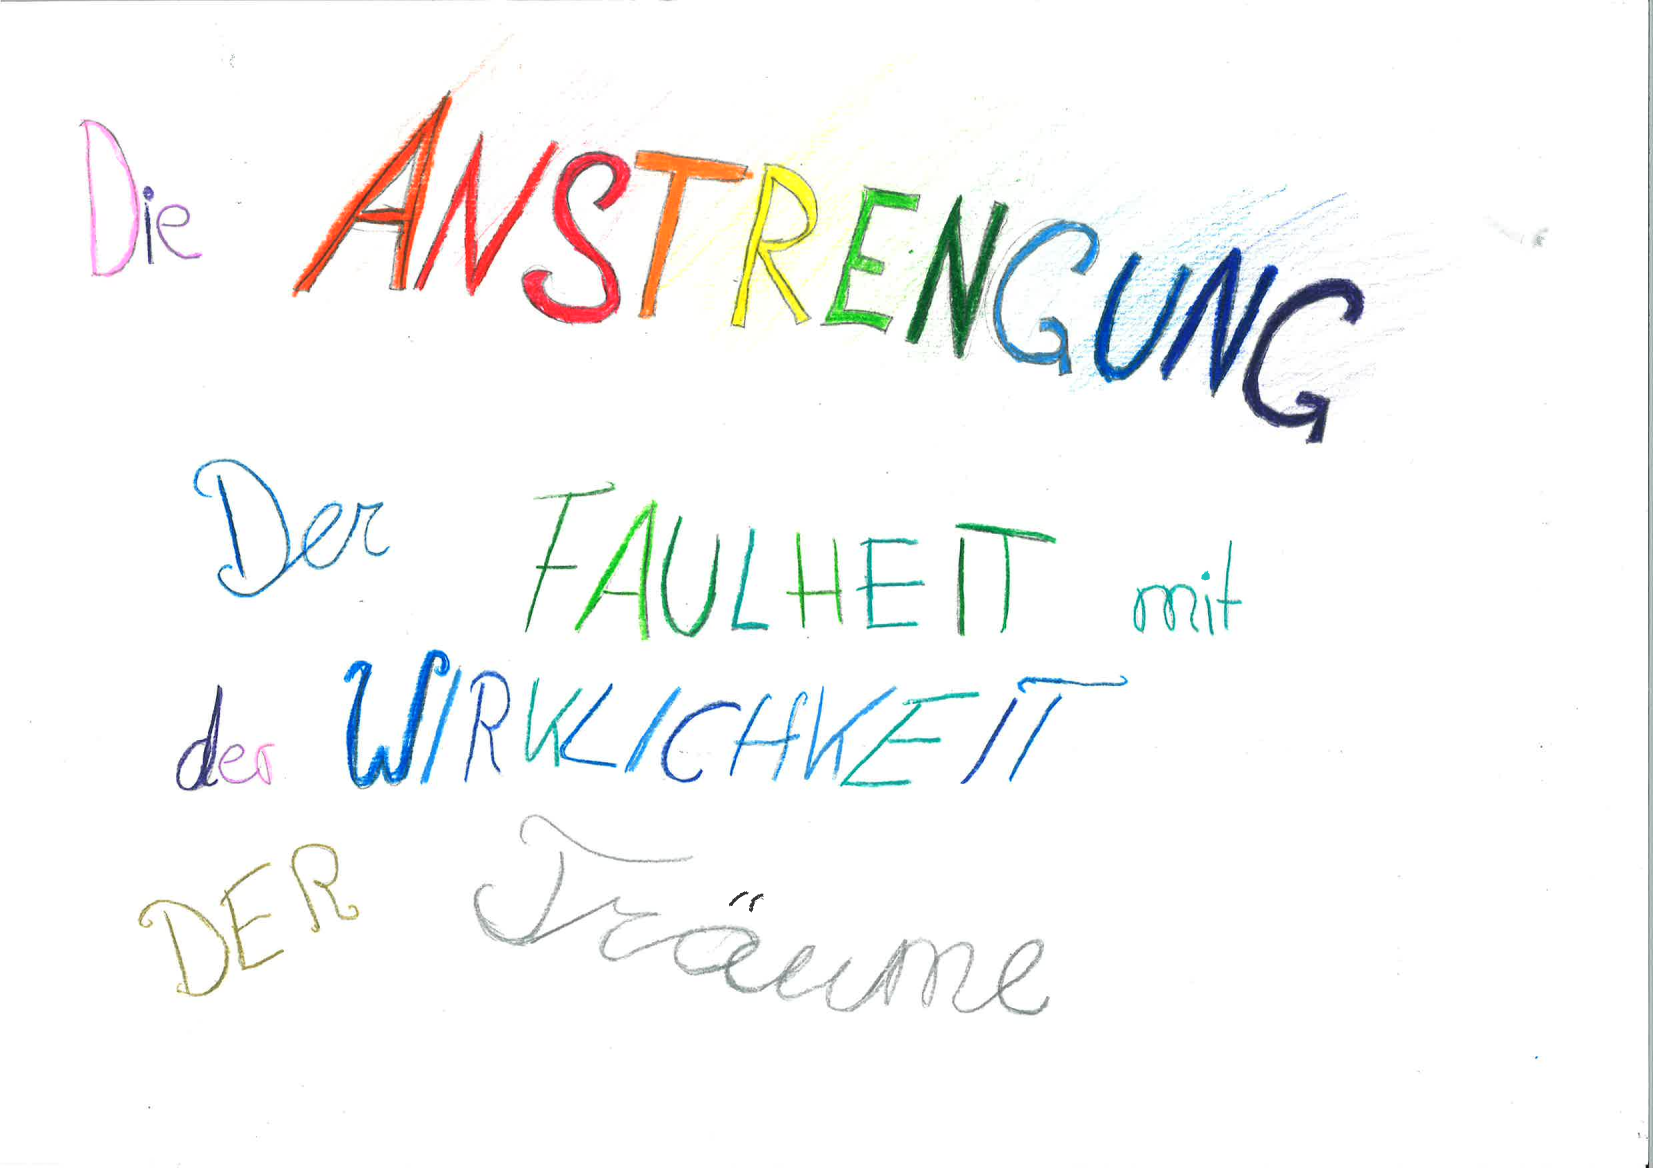 Die ANSTRENGUNG
Der FAULHEIT mit
der WIRKLICHKEIT
DER Träume